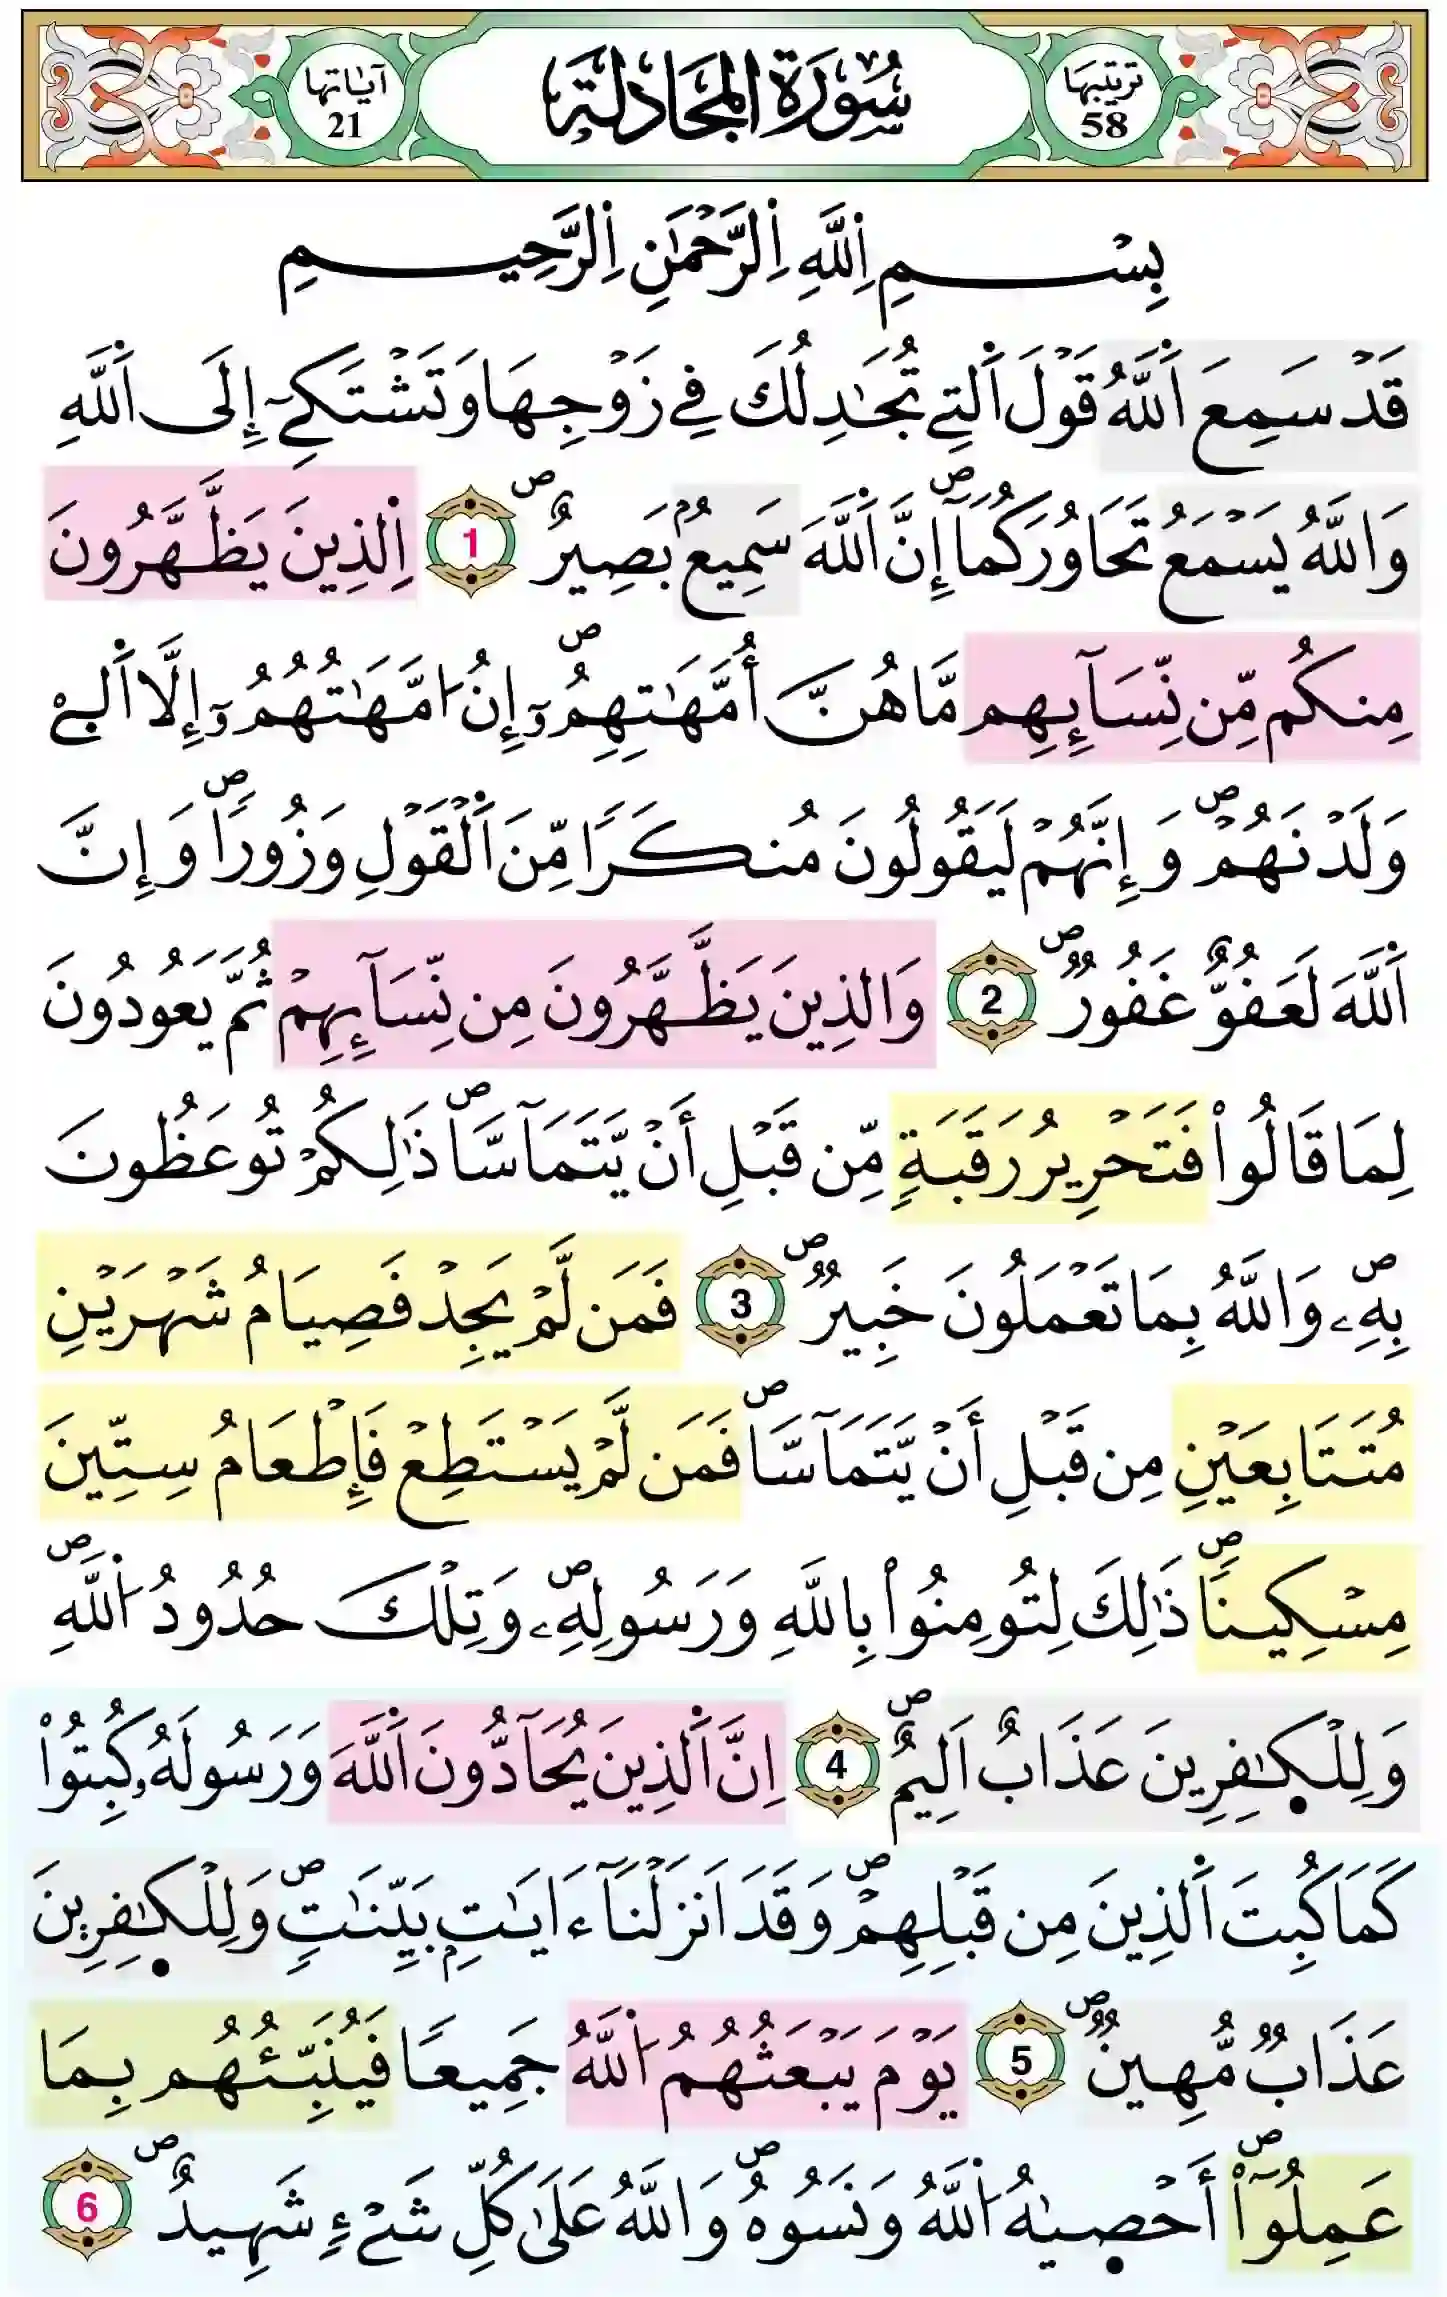 ترتيبها 58 سُورَةُ المُجَادلَة آياتها 21
بِسْمِ اِ۬للَّهِ اِ۬لرَّحْمَٰنِ اِ۬لرَّحِيمِ
قَدْ سَمِعَ اَ۬للَّهُ قَوْلَ اَ۬لتِے تُجَٰدِلُكَ فِے زَوْجِهَا وَتَشْتَكِےٓ إِلَى اَ۬للَّهِ
وَاللَّهُ يَسْمَعُ تَحَاوُرَكُمَآۖ إِنَّ اَ۬للَّهَ سَمِيعُۢ بَصِيرٌۖ 1 اِ۬لذِينَ يَظَّهَّرُونَ
مِنكُم مِّن نِّسَآئِهِم مَّا هُنَّ أُمَّهَٰتِهِمُۥٓۖ إِنُ ا۟مَّهَٰتُهُمُۥٓ إِلَّا اَ۬لَّٰٓـِٔے
وَلَدْنَهُمْۖ وَإِنَّهُمْ لَيَقُولُونَ مُنكَراٗ مِّنَ اَ۬لْقَوْلِ وَزُوراٗۖ وَإِنَّ
اَ۬للَّهَ لَعَفُوٌّ غَفُورٞۖ 2 وَالذِينَ يَظَّهَّرُونَ مِن نِّسَآئِهِمْ ثُمَّ يَعُودُونَ
لِمَا قَالُواْ فَتَحْرِيرُ رَقَبَةٖ مِّن قَبْلِ أَنْ يَّتَمَآسَّاۖ ذَٰلِكُمْ تُوعَظُونَ
بِهِۦۖ وَاللَّهُ بِمَا تَعْمَلُونَ خَبِيرٞۖ 3 فَمَن لَّمْ يَجِدْ فَصِيَامُ شَهْرَيْنِ
مُتَتَابِعَيْنِ مِن قَبْلِ أَنْ يَّتَمَآسَّاۖ فَمَن لَّمْ يَسْتَطِعْ فَإِطْعَامُ سِتِّينَ
مِسْكِيناٗۖ ذَٰلِكَ لِتُومِنُواْ بِاللَّهِ وَرَسُولِهِۦۖ وَتِلْكَ حُدُودُ اُ۬للَّهِۖ
وَلِلْكٰ۪فِرِينَ عَذَابٌ اَلِيمٌۖ 4 اِنَّ اَ۬لذِينَ يُحَآدُّونَ اَ۬للَّهَ وَرَسُولَهُۥ كُبِتُواْ
كَمَا كُبِتَ اَ۬لذِينَ مِن قَبْلِهِمْۖ وَقَدَ اَنزَلْنَآ ءَايَٰتِۢ بَيِّنَٰتٖۖ وَلِلْكٰ۪فِرِينَ
عَذَابٞ مُّهِينٞۖ 5 يَوْمَ يَبْعَثُهُمُ اُ۬للَّهُ جَمِيعاٗ فَيُنَبِّئُهُم بِمَا
عَمِلُوٓاْۖ أَحْص۪يٰهُ اُ۬للَّهُ وَنَسُوهُۖ وَاللَّهُ عَلَىٰ كُلِّ شَےْءٖ شَهِيدٌۖ 6